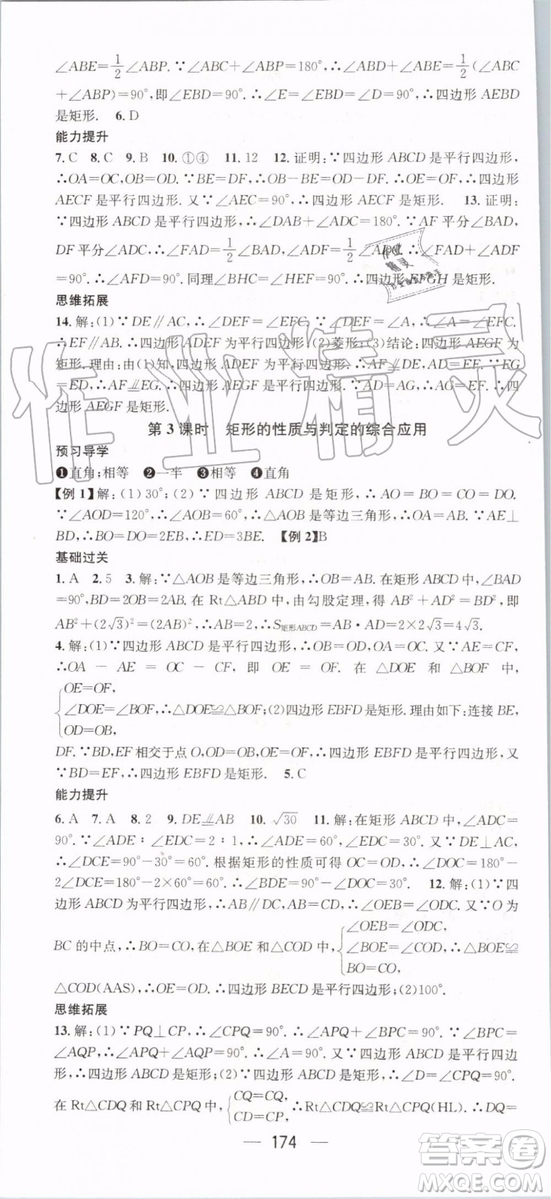 ∠ABE=1/2∠ABP. ∵∠ABC+∠ABP=180°,∴∠ABD+∠ABE=1/2(∠ABC
+∠ABP)=90°,即∠EBD=90°. ∴∠E=∠EBD=∠ADB=90°. ∴四边形 AEBD
是矩形. 6. D
能力提升
7. C 8. C 9. B 10. ①④ 11. 12 12. 证明:∵四边形 ABCD 是平行四边形,
∴OA=OC,OB=OD. ∵BE=DF,∴OB-BE=OD-DF. ∴OE=OF. ∴四边形
AECF 是平行四边形. 又∵∠AEC=90°,∴四边形 AECF 是矩形. 13. 证明:
∵四边形 ABCD 是平行四边形,∴∠DAB+∠ADC=180°. ∵AF 平分∠BAD,
DF 平分∠ADC,∴∠FAD=1/2∠BAD,∠ADF=1/2∠ADC. ∴∠FAD+∠ADF=
90°. ∴∠AFD=90°. 同理∠BHC=∠HEF=90°. ∴四边形 EFGH 是矩形.
思维拓展
14. 解:(1)∵DE∥AC,∴∠DEF=∠EFC. ∵∠DEF=∠A,∴∠A=∠EFC.
∴EF∥AB. ∴四边形 ADEF 为平行四边形;(2)菱形;(3)结论:四边形 AEGF 为
矩形. 理由:由(1)知,四边形 ADEF 为平行四边形,∴AF⫫DE,AD=EF. ∵EG
=DE,∴AF⫫EG. ∴四边形 AEGF 是平行四边形. ∵AD=AG,∴AG=EF. ∴四
边形 AEGF 是矩形.
第 3 课时 矩形的性质与判定的综合应用
预习导学
❶直角;相等 ❷一半 ❸直角;相等
【例 1】解:(1)30°;(2)∵四边形 ABCD 是矩形,∴AO=BO=CO=DO.
∵∠AOD=120°,∴∠AOB=60°. ∴△ABO 是等边三角形,∴AB=AO. ∵AE⊥
BD,∴BE=OE. ∴DO=BO=2BE. ∴DE=3BE. 【例 2】B
基础过关
1. A 2. 5 3. 解:∵△AOB 是等边三角形,∴OB=AB=2. 在矩形 ABCD 中,∠BAD
=90°,BD=2OB=2AB=4. 在 Rt△ABD 中,由勾股定理,得 AB²+AD²=BD²,即
AB²+(2√3)²=(2AB)²,∴AB=2. ∴S矩形ABCD=AB·AD=2×2√3=4√3.
4. 解:(1)∵四边形 ABCD 是矩形,∴OB=OD,OA=OC. 又∵AE=CF,
∴OA-AE=OC-CF,即 OE=OF. 在△DOE 和△BOF 中,
{OE=OF,
∠DOE=∠BOF,∴△DOE≌△BOF;(2)四边形 EBFD 是矩形. 理由如下:连接 BE,
OD=OB,
DF. ∵BD,EF 相交于点 O,OD=OB,OE=OF,∴四边形 EBFD 是平行四边形. 又
∵BD=EF,∴四边形 EBFD 是矩形. 5. C
能力提升
6. A 7. A 8. A 9. DE⫫AB 10. √30 11. 解:在矩形 ABCD 中,∠ADC=
90°. ∵∠ADE∶∠EDC=2∶1,∴∠ADE=60°,∠EDC=30°. 又∵DE⊥AC,
∴∠DCE=90°-30°=60°. 根据矩形的性质可得 OC=OD,∴∠DOC=180°-
2∠DCE=180°-2×60°=60°,∴∠BDE=90°-60°=30°. 12. 解:(1)∵四
边形 ABCD 为平行四边形,∴AB∥DC. ∴∠OEB=∠ODC. 又∵O 为
BC 的中点,∴BO=CO,在△BOE 和△COD 中,{∠OEB=∠ODC,
∠BOE=∠COD,∴△BOE≌
BO=CO,
△COD(AAS),∴OE=OD. ∴四边形 BECD 是平行四边形;(2)100°.
思维拓展
13. 解:(1)∵PQ⊥CP,∴∠CPQ=90°. ∴∠APQ+∠BPC=90°. ∵∠BPC=
∠AQP,∴∠APQ+∠AQP=90°. ∴∠A=90°. ∴四边形 ABCD
是矩形;(2)∵四边形 ABCD 是矩形,∴∠D=∠CPQ=90°.
在 Rt△CDQ 和 Rt△CPQ 中,{CQ=CQ,
CD=CP,∴Rt△CDQ≌Rt△CPQ(HL). ∴DQ=
174
作业精灵
答案圈